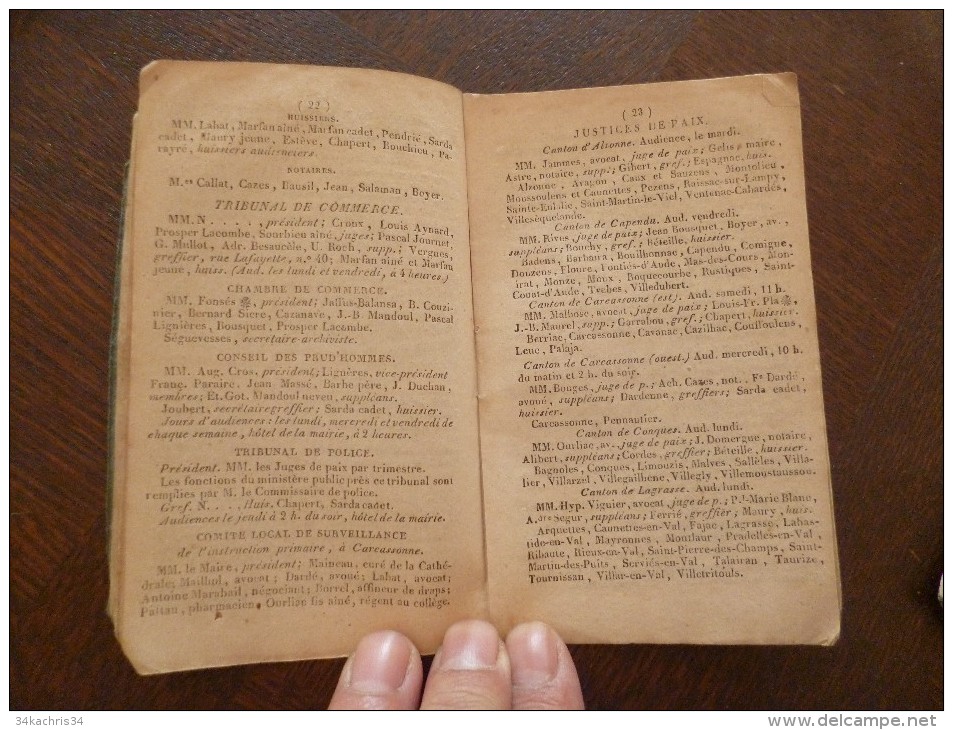 ( 22 )
HUISSIERS.
MM. Labat, Marfan aîné, Marfan cadet, Pendrié, Sarda
cadet, Maury jeune, Estève, Chapert, Bouchieu, Pa-
rayré, huissiers audienciers.
NOTAIRES.
M.es Callat, Cazes, Bausil, Jean, Salaman, Boyer.
TRIBUNAL DE COMMERCE.
MM. N . . . . , président; Croux, Louis Aynard,
Prosper Lacombe, Sourbieu aîné, juges; Pascal Journet,
G. Mullot, Adr. Besaucèle, U. Roch, supp.; Vergues,
greffier, rue Lafayette, n.º 40; Marfan aîné et Marfan
jeune, huiss. (Aud. les lundi et vendredi, à 4 heures.)
CHAMBRE DE COMMERCE.
MM. Fonsés , président; Jallius-Balansa, B. Couzi-
nier, Bernard Sicre, Cazanave, J.-B. Mandoul, Pascal
Lignières, Bousquet, Prosper Lacombe.
Séguevesses, secrétaire-archiviste.
CONSEIL DES PRUD'HOMMES.
MM. Aug. Cros, président; Lignères, vice-président
Franç. Paraire, Jean Massé, Barbe père, J. Duchan,
membres; Et. Got, Mandoul neveu, suppléans.
Joubert, secrétaire greffier; Sarda cadet, huissier.
Jours d'audiences: les lundi, mercredi et vendredi de
chaque semaine, hôtel de la mairie, à 2 heures.
TRIBUNAL DE POLICE.
Président. MM. les Juges de paix par trimestre.
Les fonctions du ministère public près ce tribunal sont
remplies par M. le Commissaire de police.
Gref. N. . . . Huis. Chapert, Sarda cadet.
Audiences le jeudi à 2 h. du soir, hôtel de la mairie.
COMITÉ LOCAL DE SURVEILLANCE
de l'instruction primaire, à Carcassonne.
MM. le Maire, président; Maineau, curé de la Cathé-
drale; Maillol, avocat; Dardé, avoué; Labat, avocat;
Antoine Marabail, négociant; Borrel, affineur de draps;
Pattau, pharmacien, Ourliac fils aîné, régent au collège.
( 23 )
JUSTICES DE PAIX.
Canton d'Alzonne. Audience, le mardi.
MM. Jammes, avocat, juge de paix; Gelis, maire,
Astre, notaire, supp.; Gibert, gref.; Espagnac, huis.
Alzonne, Aragon, Caux et Sauzens, Montolieu,
Moussoulens et Caunettes, Pezens, Raissac-sur-Lampy,
Sainte-Eulalie, Saint-Martin-le-Viel, Ventenac-Cabardés,
Villesèquelande.
Canton de Capendu. Aud. vendredi.
MM. Rives, juge de paix; Jean Bousquet, Boyer, av.,
suppléans; Bouchy, gref.; Béteille, huissier.
Badens, Barbaira, Bouilhonnac, Capendu, Comigue,
Douzens, Floure, Fontiés-d'Aude, Mas-des-Cours, Mon-
irat, Monze, Moux, Roquecourbe, Rustiques, Saint-
Couat-d'Aude, Trebes, Villedubert.
Canton de Carcassonne (est). Aud. samedi, 11 h.
MM. Malbosc, avocat, juge de paix; Louis-Fr. Pla ,
J.-B. Maurel, supp.; Garrabou, gref.; Chapert, huissier.
Berriac, Carcassonne, Cavanac, Cazilhac, Couffoulens,
Leuc, Palaja.
Canton de Carcassonne (ouest.) Aud. mercredi, 10 h.
du matin et 2 h. du soir.
MM. Bouges, juge de p.; Ach. Cazes, not., Fs Dardé,
avoué, suppléans; Dardenne, greffiers; Sarda cadet,
huissier.
Carcassonne, Pennautier.
Canton de Conques. Aud. lundi.
MM. Ourliac, av., juge de paix; J. Domergue, notaire,
Alibert, suppléans; Cociles, greffier; Béteille, huissier.
Bagnoles, Conques, Limouzis, Malves, Sallèles, Villa-
lier, Villarzel, Villegailhenc, Villegly, Villemoustaussou.
Canton de Lagrasse. Aud. lundi.
MM. Hyp. Viguier, avocat, juge de p.; P.l-Marie Blanc,
A.dre Segur, suppléans; Ferrié, greffier; Maury, huis.
Arquettes, Caunettes-en-Val, Fajac, Lagrasse, Labas-
tide-en-Val, Mayronnes, Montlaur, Pradelles-en-Val,
Ribaute, Rieux-en-Val, Saint-Pierre-des-Champs, Saint-
Martin-des-Puits, Serviés-en-Val, Talairan, Taurize,
Tournissan, Villar-en-Val, Villetritouls.
34kachris34
www.delcampe.net